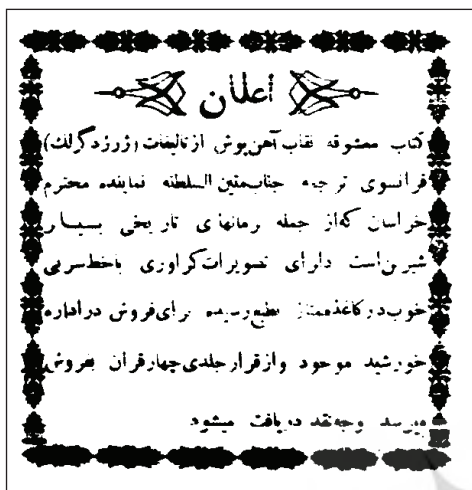 اعلان
کتاب معشوقه نقاب آهن پوش از تالیفات (ژرژدگرلك)
فرانسوی ترجمه جناب متین السلطنه نماینده محترم
خراسان که از جمله رمانهای تاریخی بسیار
شیرین است دارای تصویرات گراوری باخط سربی
خوب در کاغذ ممتاز بطبع رسیده برای فروش در اداره
خورشید موجود و از قرار جلدی چهار قران بفروش
میرسد وجه نقد دریافت میشود